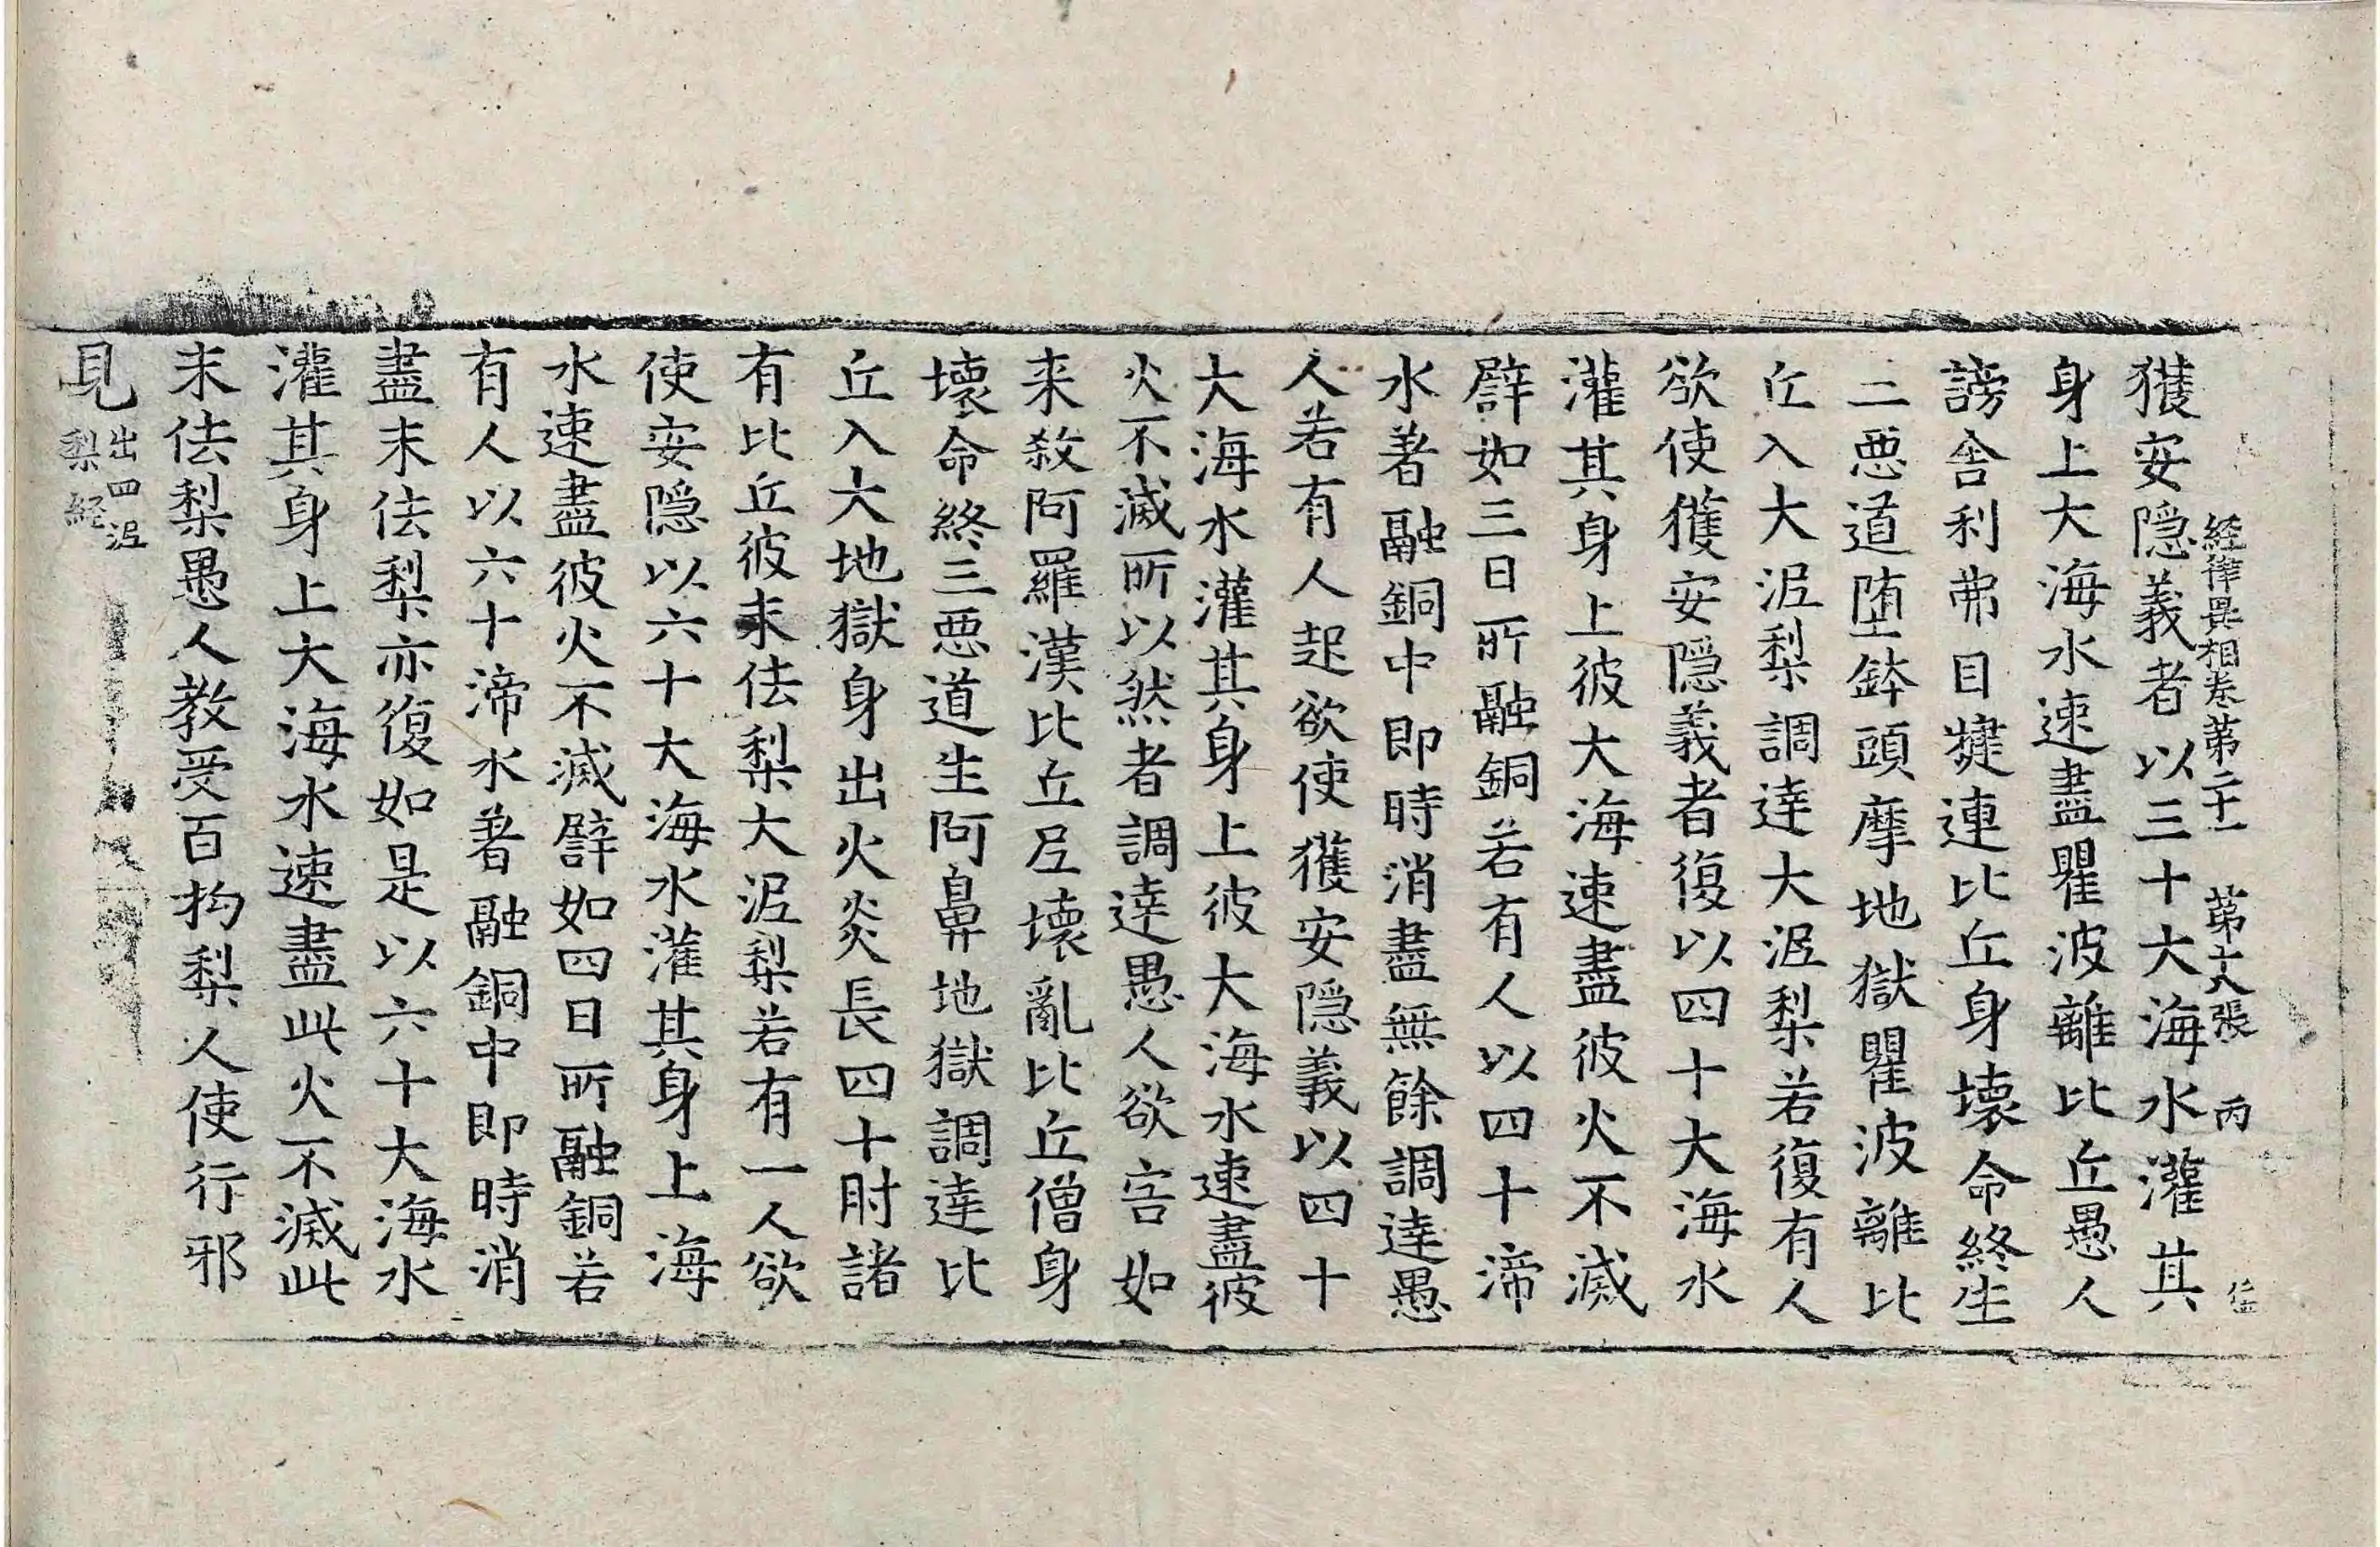 經律異相卷第二十一 第十六張 丙
獲安隱義者以三十大海水灌其
身上大海水速盡瞿波離比丘愚人
謗舍利弗目揵連比丘身壞命終生
三惡道墮鉢頭摩地獄瞿波離比
丘入大泥梨調達大泥梨若復有人
欲使獲安隱義者復以四十大海水
灌其身上彼大海速盡彼火不滅
譬如三日所融銅若有人以四十渧
水著融銅中即時消盡無餘調達愚
人若有人起欲使獲安隱義以四十
大海水灌其身上彼大海水速盡彼
火不滅所以然者調達愚人欲害如
来教阿羅漢比丘尼壞亂比丘僧身
壞命終三惡道生阿鼻地獄調達比
丘入大地獄身出火炎長四十肘諸
有比丘彼末佉梨大泥梨若有一人欲
使安隱以六十大海水灌其身上海
水速盡彼火不滅譬如四日所融銅若
有人以六十渧水著融銅中即時消
盡末佉梨亦復如是以六十大海水
灌其身上大海水速盡此火不滅此
末佉梨愚人教受百拘梨人使行邪
見出四泥
梨經